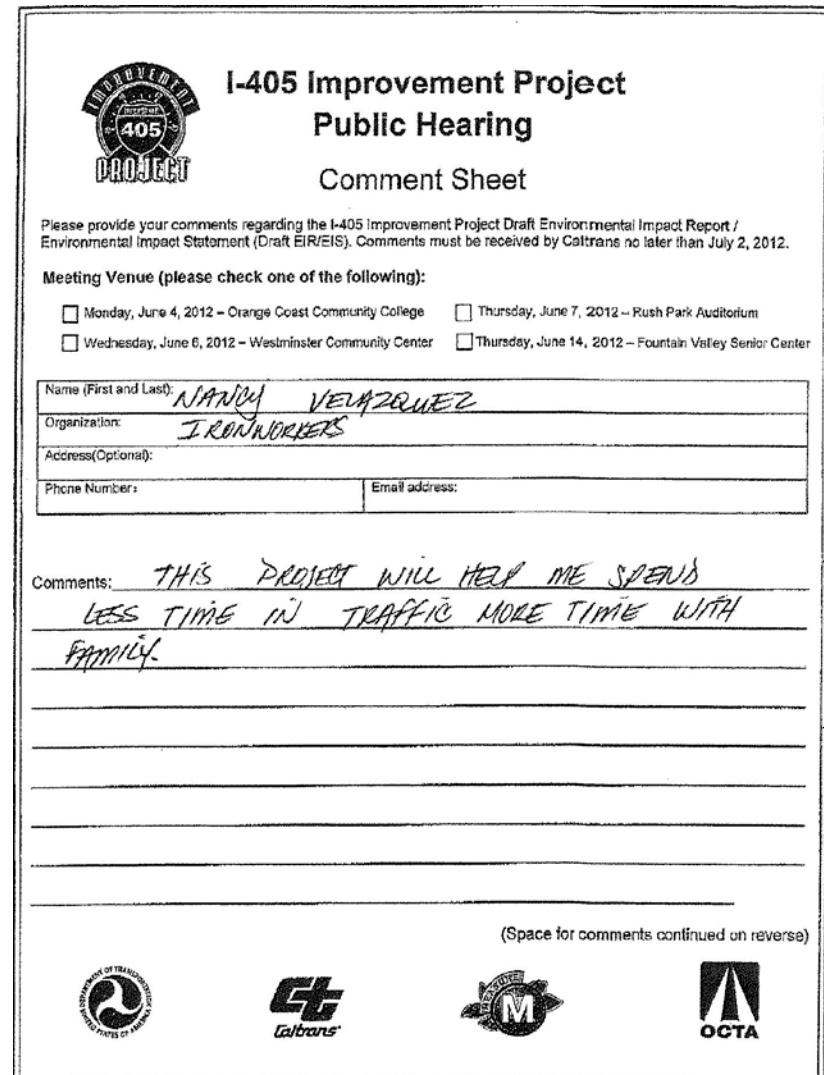 IMPROVEMENT
INTERSTATE
405
PROJECT
I-405 Improvement Project
Public Hearing
Comment Sheet
Please provide your comments regarding the I-405 Improvement Project Draft Environmental Impact Report /
Environmental Impact Statement (Draft EIR/EIS). Comments must be received by Caltrans no later than July 2, 2012.
Meeting Venue (please check one of the following):
Monday, June 4, 2012 – Orange Coast Community College
Thursday, June 7, 2012 – Rush Park Auditorium
Wednesday, June 6, 2012 – Westminster Community Center
Thursday, June 14, 2012 – Fountain Valley Senior Center
Name (First and Last): NANCY VELAZQUEZ
Organization: IRONWORKERS
Address(Optional):
Phone Number:
Email address:
Comments: THIS PROJECT WILL HELP ME SPEND
LESS TIME IN TRAFFIC MORE TIME WITH
FAMILY.
(Space for comments continued on reverse)
DEPARTMENT OF TRANSPORTATION
UNITED STATES OF AMERICA
Ct
Caltrans
MEASURE
M
OCTA